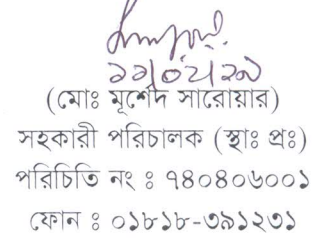 ১১/০২/২১
(মোঃ মূর্শেদ সারোয়ার)
সহকারী পরিচালক (স্থাঃ প্রঃ)
পরিচিতি নং ঃ ৭৪০৪০৬০০১
ফোন ঃ ০১৮১৮-৩৯১২৩১